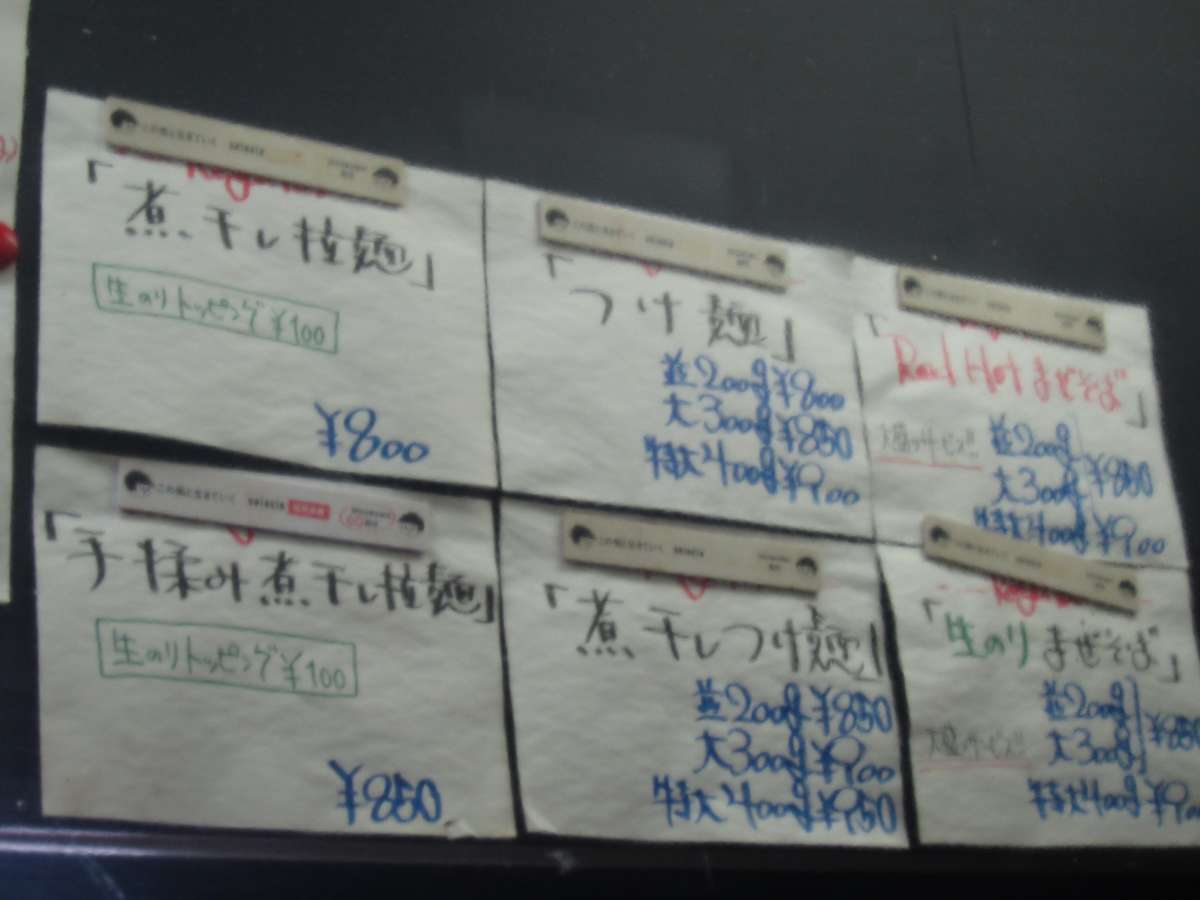 「煮干し拉麺」
生のりトッピング¥100
¥800
「つけ麺」
並200g¥800
大300g¥850
特大400g¥900
「Red Hot まぜそば」
並200g
大300g ¥850
特大400g ¥900
「手揉み煮干し拉麺」
生のりトッピング¥100
¥850
「煮干しつけ麺」
並200g¥850
大300g¥900
特大400g¥950
「生のりまぜそば」
並200g
大300g ¥850
特大400g